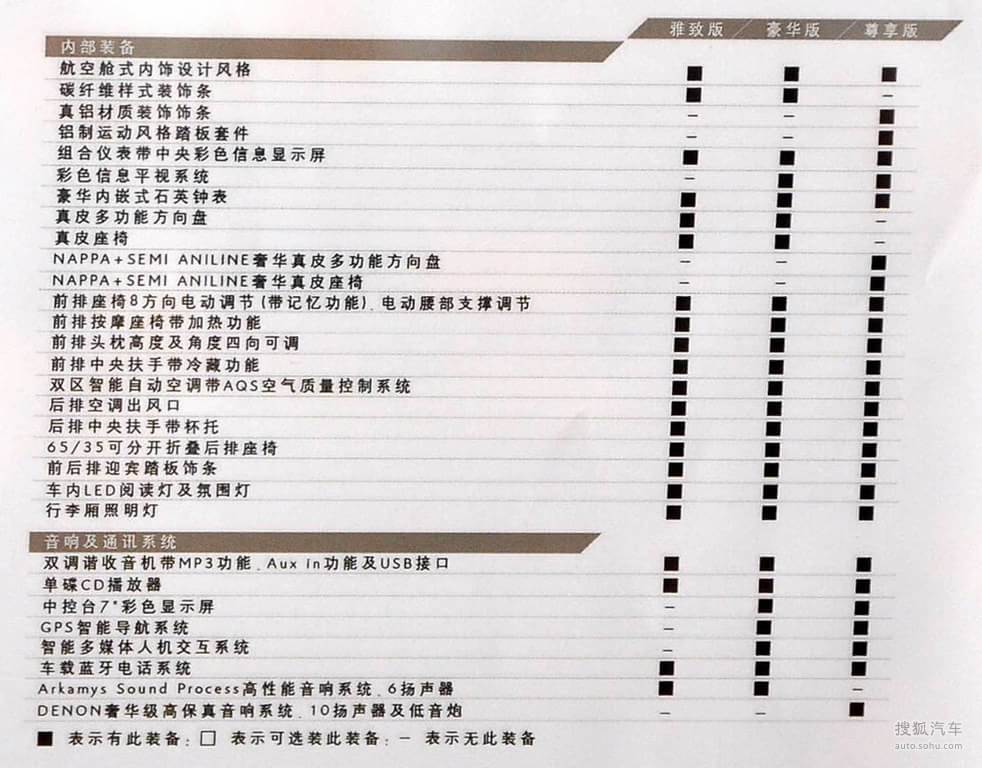 雅致版 豪华版 尊享版
内部装备
航空舱式内饰设计风格 ■ ■ ■
碳纤维样式装饰条 ■ ■ –
真铝材质装饰饰条 – – ■
铝制运动风格踏板套件 – – ■
组合仪表带中央彩色信息显示屏 ■ ■ ■
彩色信息平视系统 – ■ ■
豪华内嵌式石英钟表 ■ ■ ■
真皮多功能方向盘 ■ ■ –
真皮座椅 ■ ■ –
NAPPA+SEMI ANILINE奢华真皮多功能方向盘 – – ■
NAPPA+SEMI ANILINE奢华真皮座椅 – – ■
前排座椅8方向电动调节(带记忆功能)、电动腰部支撑调节 ■ ■ ■
前排按摩座椅带加热功能 ■ ■ ■
前排头枕高度及角度四向可调 ■ ■ ■
前排中央扶手带冷藏功能 ■ ■ ■
双区智能自动空调带AQS空气质量控制系统 ■ ■ ■
后排空调出风口 ■ ■ ■
后排中央扶手带杯托 ■ ■ ■
65/35可分开折叠后排座椅 ■ ■ ■
前后排迎宾踏板饰条 ■ ■ ■
车内LED阅读灯及氛围灯 ■ ■ ■
行李厢照明灯 ■ ■ ■
音响及通讯系统
双调谐收音机带MP3功能、Aux in功能及USB接口 ■ ■ ■
单碟CD播放器 ■ ■ ■
中控台7"彩色显示屏 – ■ ■
GPS智能导航系统 – ■ ■
智能多媒体人机交互系统 – ■ ■
车载蓝牙电话系统 ■ ■ ■
Arkamys Sound Process高性能音响系统、6扬声器 ■ ■ –
DENON奢华级高保真音响系统、10扬声器及低音炮 – – ■
■ 表示有此装备；□ 表示可选装此装备；– 表示无此装备
搜狐汽车
auto.sohu.com